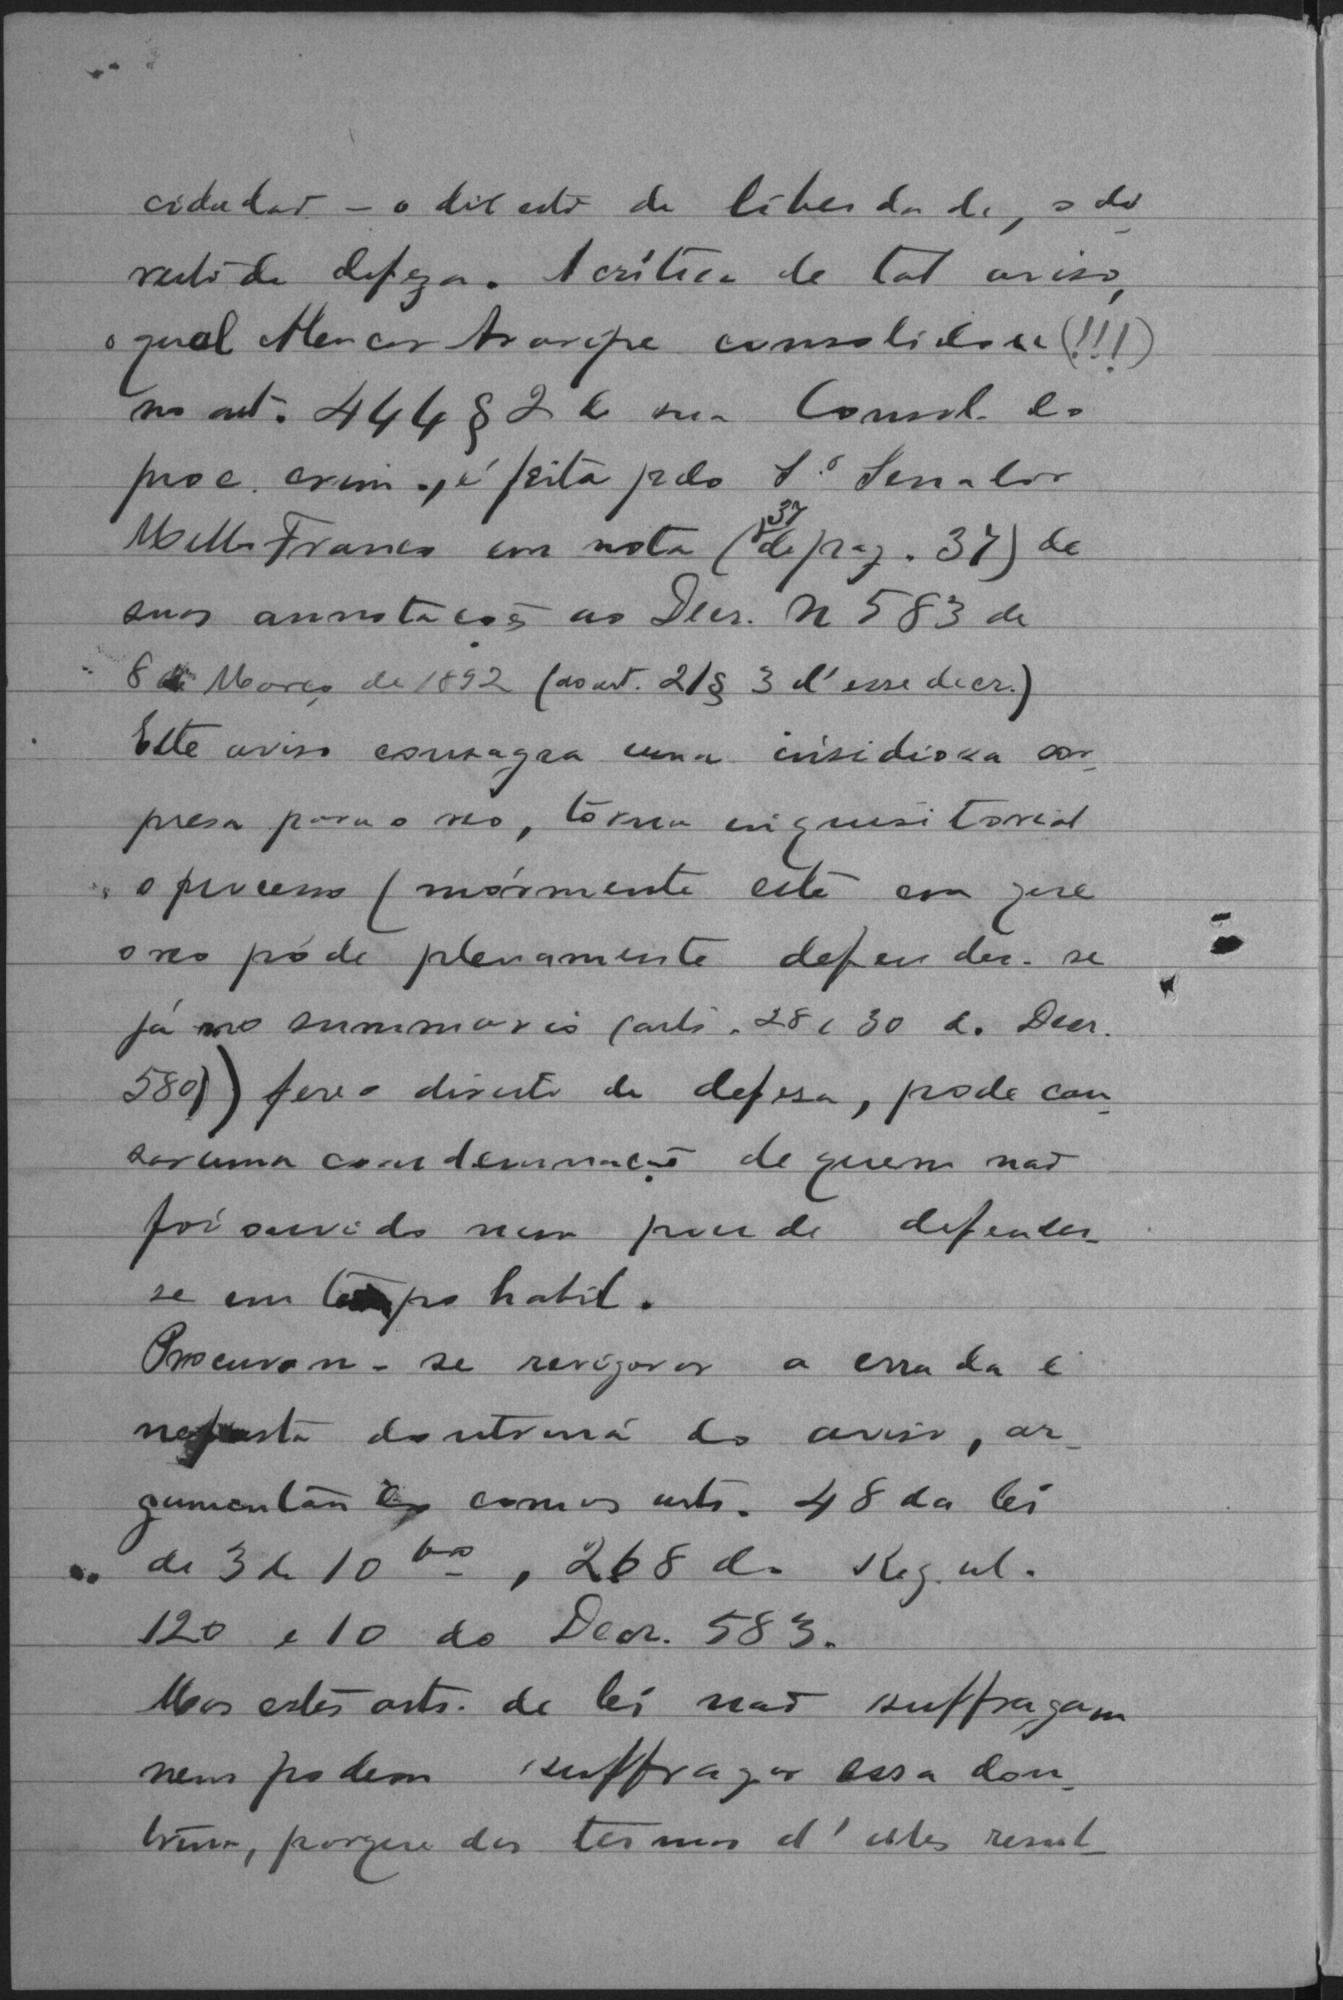 cidadaõ – o direito de liberdade, o di-
reito de defeza. A crítica de tal aviso,
o qual Alencar Araripe consolidou (!!!)
no art. 444 § 2 de sua Consol. do
proc. crim., é feita pelo Sr. Senador
Mello Franco em nota (37 de pag. 37) de
suas annotações ao Decr. N 583 de
8 de Março de 1892 (ao art. 21 § 3 d'esse decr.)
Este aviso consagra uma insidiosa sor-
presa para o reo, torna inquisitorial
o processo (mórmente este em que
o reo póde plenamente defender-se
já no summario (arts. 28 e 30 do Decr.
580)) fere o direito de defesa, pode cau-
sar uma condemnação de quem naõ
foi ouvido nem poude defender-
se em tempo habil.
Procuram-se revigorar a errada e
nefasta doutrina do aviso, ar-
gumentan com os arts. 48 da lei
de 3 de 10bro, 268 do Regul.
120 e 10 do Decr. 583.
Mas estes arts. de lei naõ suffragam
nem podem suffragar essa dou-
trina, porque dos termos d'elles resul-